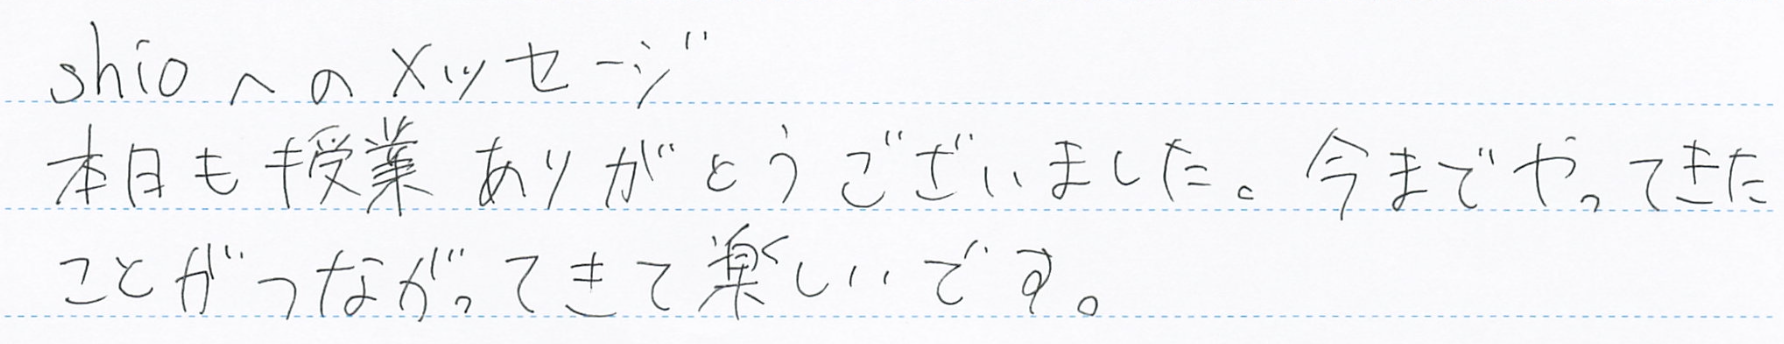 shioへのメッセージ
本日も授業ありがとうございました。今までやってきた
ことがつながってきて楽しいです。